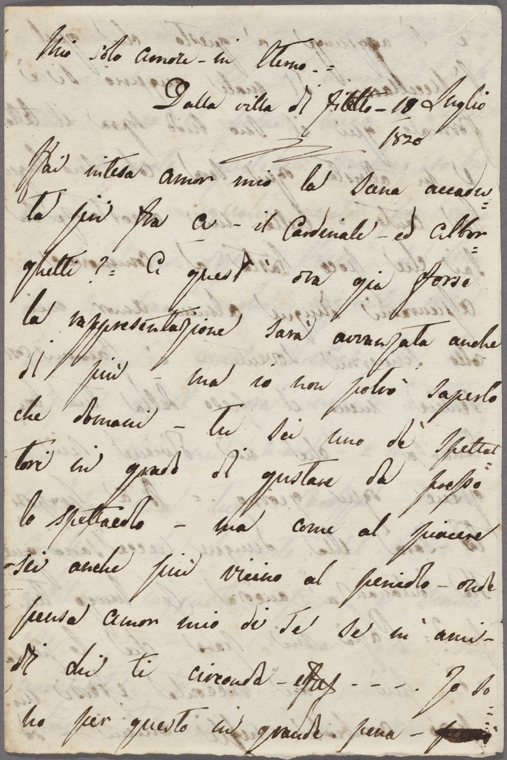 Mio solo amore - in Eterno.=
Dalla villa di Filetto - 18 Luglio
1820
Hai intesa amor mio la scena accadu=
ta più fra A - il Cardinale - ed Albor=
ghetti?= A quest' ora già forse
la rappresentazione sarà avvanzata anche
di più ma io non potrò saperlo
che domani - tu sei uno de' spetta=
tori in grado di gustare da presso
lo spettacolo - ma come al piacere
sei anche più vicino al pericolo - onde
pensa amor mio di Te se m' ami -
di chi ti circonda - ---- . Io so=
no per questo in grande pena -